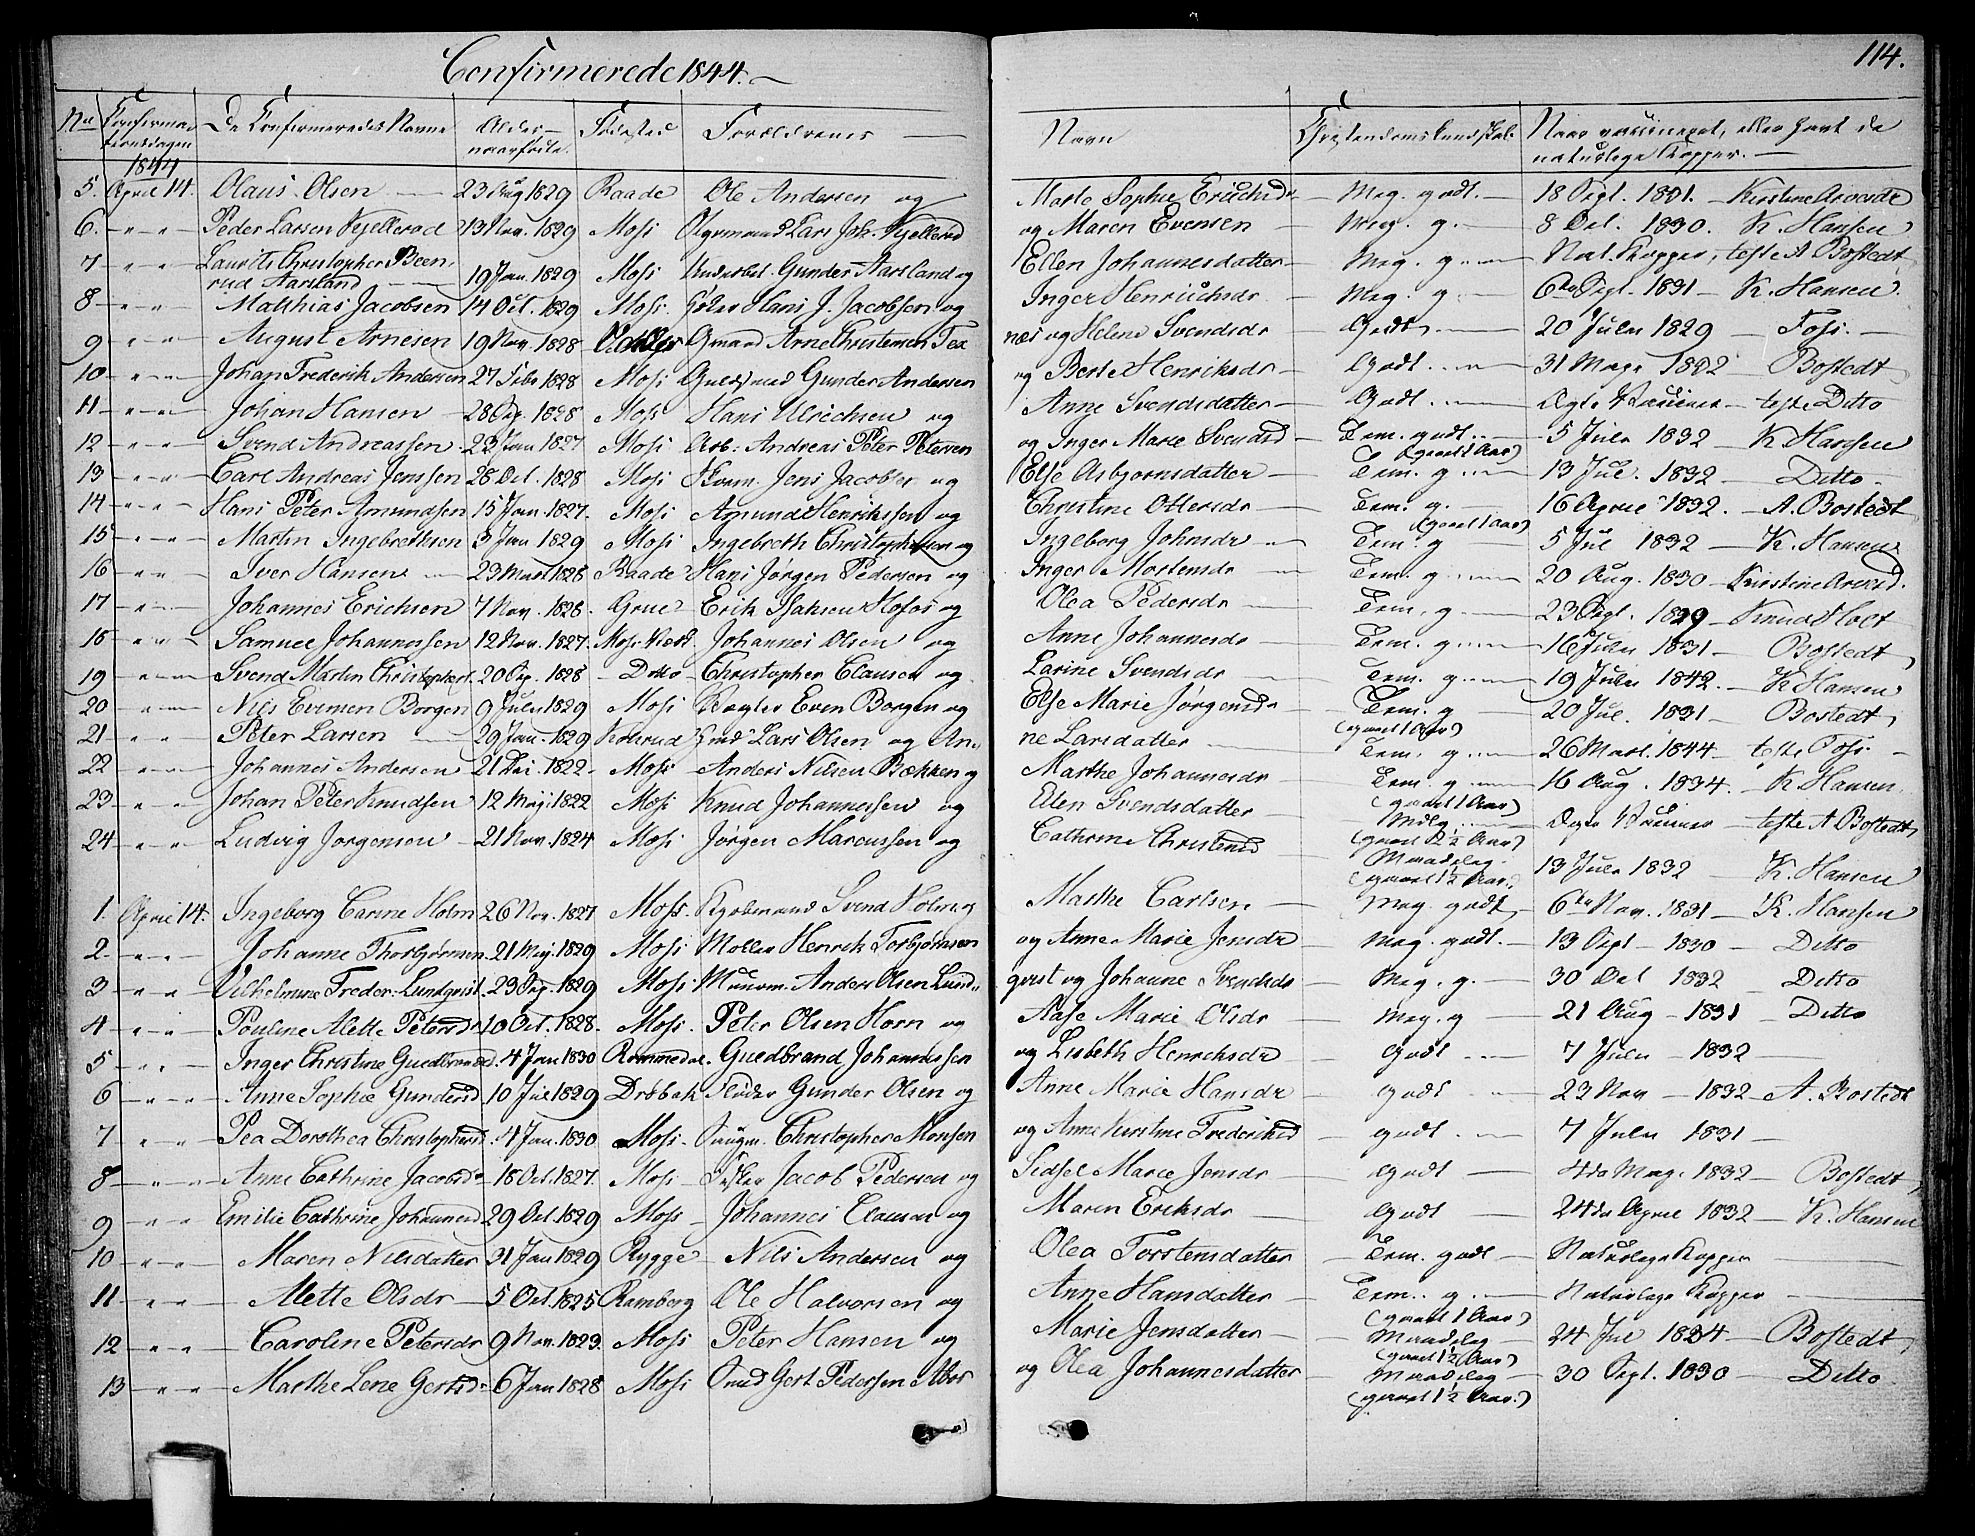 Confirmerede 1844.
114.
No Confirmationsdagen De Confirmeredes Navne Alder naar fødte. Fødested Forældrenes Navn Naar vaccineret, eller havt de naturlige Kopper.
1844
5. April 14. Olaus Olsen 23 Aug 1829 Raade Ole Andersen og Marte Sophie Meg. godt. 18 Sept. 1831. Kirstine
6. " " Peder Larsen Kjellerød 13 Nov. 1829 Moss Lars Joh. Kjellerød og Maren Evensen Meg. g. 8 Oct. 1830. K. Hansen
7 " " Laurits Christopher Been-
rud Aarsland 19 Jan. 1829 Moss Gunder Aarsland og Ellen Johannesdatter Meg. g. Nat. Kopper, teste A Bostedt
8 " " Matthias Jacobsen 14 Oct. 1829 Moss. Hans J. Jacobsen og Inger Henrichsdr Meg. g. 6te Sept. 1831 K. Hansen.
9 " " August Arnesen 19 Nov. 1828 Gmand Arne Christensen næs og Helene Svendsdr Godt. 20 Julii 1829 Foss.
10 " " Johan Frederik Andersen 27 Febr 1828 Moss Guldsmed Gunder Andersen og Berte Henriksdr Godt. 31 1832 Bostedt
11 " " Johan Hansen 28 1828 Moss Hans Ulrichsen og Anne Svendsdatter Godt. teste Ditto
12 " " Svend Andreassen 23 Jan 1827 Moss Arb: Andreas Peter Petersen og Inger Marie Svendsd Tem. godt.
(gaaet 1 Aar) 5 Julii 1832 K Hansen
13 " " Carl Andreas Jenssen 28 Oct. 1828 Moss Jens Jacobsen og Else Asbjørnsdatter Tem. g. 13 Jul. 1832 Ditto
14 " " Hans Peter Amundsen 15 Jan. 1827. Moss Amund Henrikssen og Christine Ottersdr Tem. g.
(gaaet 1 Aar) 16 April 1832. A. Bostedt
15 " " Martin Ingebrethsen 3 Jan 1829 Moss Ingebreth Christophersen og Ingeborg Johnsdr Tem. g 5 Jul 1832 K. Hansen
16 " " Iver Hansen 23 Mart 1828 Raade Hans Jørgen Pedersen og Inger Mortensdr Tem. g. 20 Aug. 1830 Kirstine
17 " " Johannes Erichsen 7 Nov. 1828. Grue Erik Isaksen Hofos og Olea Pedersdr Tem. g 23 Sept. 1829 Knud Holt
18 " " Samuel Johannessen 12 Nov. 1827. Moss Johannes Olsen og Anne Johannesdr Tem. g. 16 Julii 1831 Bostedt
19 " " Svend Martin Christophers. 20 1828 Ditto Christopher Clausen og Larine Svendsdr Tem. g. 19 Julii 1842. K Hansen
20 " " Nils Evensen Borgen 9 Julii 1829 Moss Even Borgen og Else Marie Jørgensdr Tem. g
(gaaet 1 Aar) 20 Jul. 1831 Bostedt
21 " " Peter Larsen 29 Jan. 1829 Lars Olsen og An-
ne Larsdatter Tem. g. 26 Mart. 1844 teste Foss.
22 " " Johannes Andersen 21 1822 Moss Anders Nilsen Bækken og Marthe Johannesdr Tem. g.
(gaaet 1 Aar) 16 Aug. 1834. K Hansen
23 " " Johan Peter Knudsen 12 1822 Moss Knud Johannessen og Ellen Svendsdatter
(gaaet 2½ Aar) teste A Bostedt
24 " " Ludvig Jørgensen 21 Nov. 1824 Moss Jørgen Marcussen og Cathrine Christensd Maadelig
(gaaet 1½ Aar.) 13 Julii 1832 K. Hansen
1. April 14. Ingeborg Carine Holm 26 Nov. 1827 Moss. Svend Holm og Marthe Carlsen Meg. godt 6te Nov. 1831 K. Hansen
2. " " Johanne Thorbjørnsen 21 Maj. 1829 Moss Møller Henrik Torbjørnsen og Anne Marie Jensdr Meg. godt. 13 Sept 1830 Ditto
3 " " Vilhelmine Freder. Lundqvist. 23 1829 Moss Muurm. Anders Olsen Lund-
qvist og Johanne Svendsdr Meg. g. 30 Oct 1832 Ditto
4 " " Pouline Alette Petersdr 10 Oct. 1828. Moss. Peter Olsen Horn og Aase Marie Olsdr Meg. g 21 Aug 1831 Ditto
5 " " Inger Christine Guldbrandsd. 4 Jan. 1830 Rommedal. Guldbrand Johannessen og Lisbeth Henrichsdr Godt 7 Julii 1832
6 " " Anne Sophie Gundersd 10 Jul 1829 Drøbak Gunder Olsen og Anne Marie Hansdr godt 23 Nov 1832 A. Bostedt
7 " " Pea Dorothea Christophersd. 4 Jan. 1830. Moss. Christopher Monsen og Anne Kirstine Frederiksd godt. 7 Julii 1831
8 " " Anne Cathrine Jacobsdr 18 Oct. 1827. Moss Fisker Jacob Pedersen og Sidsel Marie Jensdr Godt 4de 1832 Bostedt
9 " " Emilie Cathrine Johannesd 29 Oct. 1829 Moss Johannes Clausen og Maren Eriksdr Godt 24de April 1832 K. Hansen
10 " " Maren Nilsdatter 31 Jan 1829 Rygge Nils Andersen og Olea Torstensdatter Tem. godt Naturlige Kopper
11 " " Alette Olsdr 5 Oct. 1825 Ramberg Ole Halvorsen og Anne Hansdatter Tem. g.
(gaaet 1 Aar) Naturlige Kopper
12 " " Caroline Petersdr 9 Nov. 1823. Moss Peter Hansen og Marie Jensdatter Maadelig
(gaaet 1½ Aar) 24 Jul 1834 Bostedt
13 " " Marthe Lene Gertsdr 6 Jan 1828 Moss Gert Pedersen og Olea Johannesdatter Maadelig
(gaaet 1½ Aar.) 30 Sept. 1830 Ditto